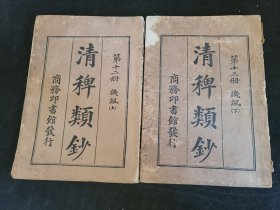 第十二册 譏諷(上)
清稗類鈔
商務印書館發行
第十三册 譏諷(下)
清稗類鈔
商務印書館發行